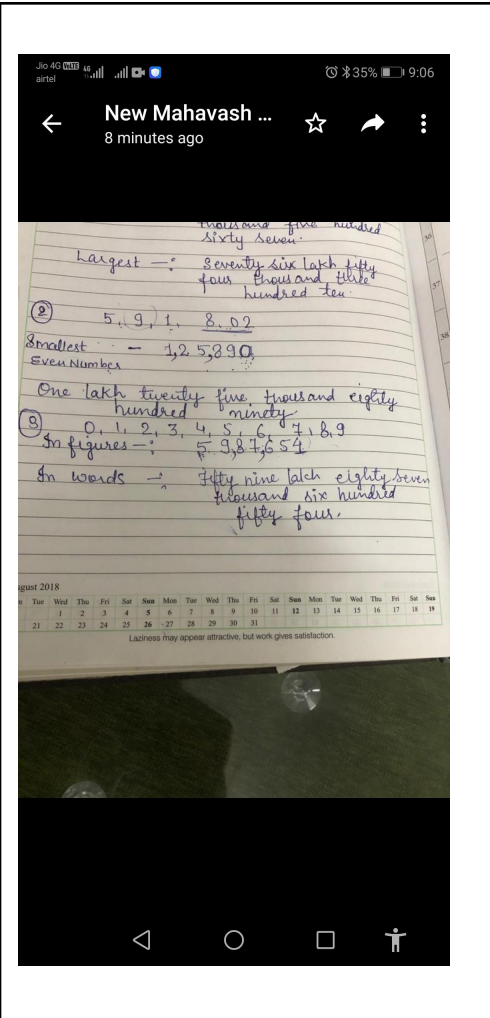 Jio 4G VoLTE 4G 35% 9:06
airtel
New Mahavash ...
8 minutes ago
thousand five hundred
sixty seven.
Largest —: Seventy six lakh fifty
four thousand three
hundred ten.
② 5, 9, 1, 8, 0 2
Smallest - 1,25,890
Even Number
One lakh twenty five, thousand eighty
hundred ninety
③ 0, 1, 2, 3, 4, 5, 6, 7, 8, 9
In figures —: 59,87,654
In words —: Fifty nine lakh eighty seven
thousand six hundred
fifty four.
36
37
38
gust 2018
n Tue Wed Thu Fri Sat Sun Mon Tue Wed Thu Fri Sat Sun Mon Tue Wed Thu Fri Sat Sun
1 2 3 4 5 6 7 8 9 10 11 12 13 14 15 16 17 18 19
21 22 23 24 25 26 27 28 29 30 31
Laziness may appear attractive, but work gives satisfaction.